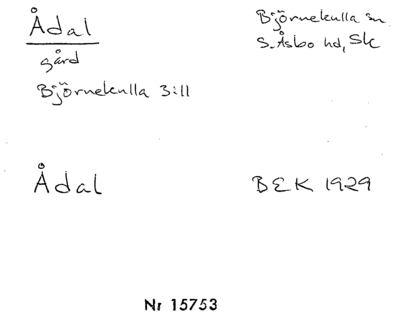 Ådal
gård
Björnekulla 3:11
Björnekulla sn
S. Åsbo hd, Sk
Ådal
BEK 1929
Nr 15753